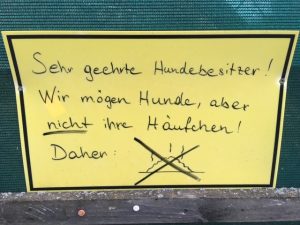 Sehr geehrte Hundebesitzer!
Wir mögen Hunde, aber
nicht ihre Häufchen!
Daher: